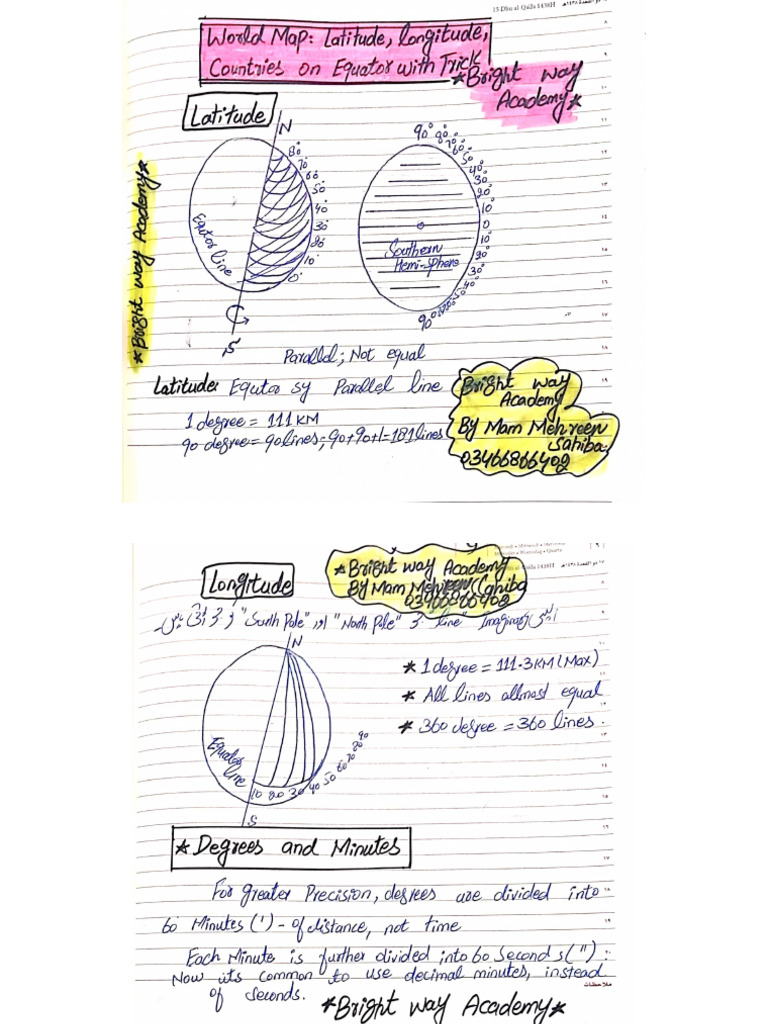 15 Dhu al Qa'da 1438H
World Map: Latitude, longitude,
Countries on Equator with Trick
*Bright way
Academy*
Latitude
N
80°
70°
60°
50
40
30°
20
10°
0°
Equator line
S
*Bright way Academy*
90°
80°
70°
60°
50
40°
30°
20°
10°
0
10°
20°
30°
40°
50
90°
Southern
Hemi-sphere
Parallel; Not equal
Latitude: Equtor sy Parallel line
1 degree = 111 KM
90 degree = 90 lines; 90+90+1=181 lines
Bright way
Academy
By Mam Mehreen
Sahiba.
03466866402
Longitude
*Bright way Academy
By Mam Mehreen Sahiba
03466866402
Imaginary line "North Pole" اور "South Pole"
N
Equator
line
10 20 30 40 50 60 70 80 90
S
* 1 degree = 111.3KM (Max)
* All lines allmost equal
* 360 degree = 360 lines.
* Degrees and Minutes
For greater Precision, degrees are divided into
60 Minutes (') - of distance, not time
Each Minute is further divided into 60 Seconds ("):
Now its common to use decimal minutes, instead
of seconds.
ملاحظات
*Bright way Academy*